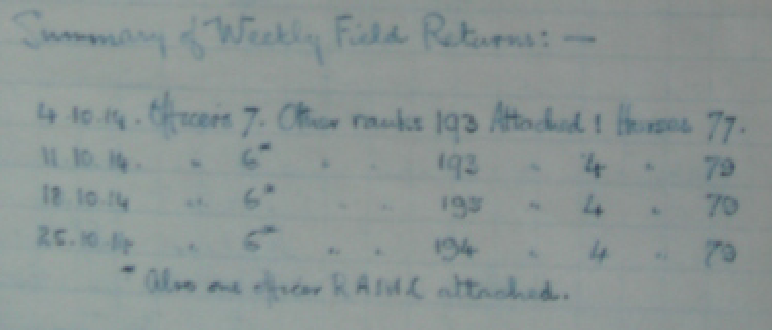 Summary of Weekly Field Returns: —
4.10.14. Officers 7. Other ranks 193 Attached 1 Horses 77.
11.10.14. " 6* " " 193 " 4 " 79
18.10.14 " 6* " " 195 " 4 " 70
25.10.14 " 6* " " 194 " 4 " 70
* Also one officer RAMC attached.